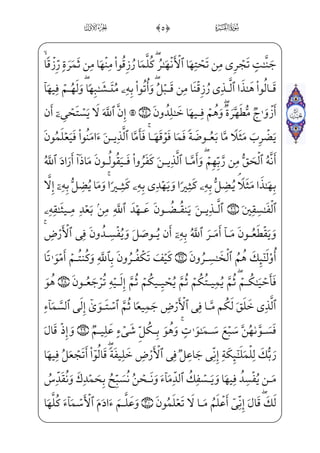 الجزء الأول ﴿٥﴾ سورة البقرة
جَنَّٰتٍ تَجْرِى مِن تَحْتِهَا ٱلْأَنْهَٰرُ ۖ كُلَّمَا رُزِقُوا۟ مِنْهَا مِن ثَمَرَةٍ رِّزْقًا ۙ
قَالُوا۟ هَٰذَا ٱلَّذِى رُزِقْنَا مِن قَبْلُ ۖ وَأُتُوا۟ بِهِۦ مُتَشَٰبِهًا ۖ وَلَهُمْ فِيهَآ
أَزْوَٰجٌ مُّطَهَّرَةٌ ۖ وَهُمْ فِيهَا خَٰلِدُونَ ﴿٢٥﴾ ۞ إِنَّ ٱللَّهَ لَا يَسْتَحْىِۦٓ أَن
يَضْرِبَ مَثَلًا مَّا بَعُوضَةً فَمَا فَوْقَهَا ۚ فَأَمَّا ٱلَّذِينَ ءَامَنُوا۟ فَيَعْلَمُونَ
أَنَّهُ ٱلْحَقُّ مِن رَّبِّهِمْ ۖ وَأَمَّا ٱلَّذِينَ كَفَرُوا۟ فَيَقُولُونَ مَاذَآ أَرَادَ ٱللَّهُ
بِهَٰذَا مَثَلًا ۘ يُضِلُّ بِهِۦ كَثِيرًا وَيَهْدِى بِهِۦ كَثِيرًا ۚ وَمَا يُضِلُّ بِهِۦٓ إِلَّا
ٱلْفَٰسِقِينَ ﴿٢٦﴾ ٱلَّذِينَ يَنقُضُونَ عَهْدَ ٱللَّهِ مِنۢ بَعْدِ مِيثَٰقِهِۦ
وَيَقْطَعُونَ مَآ أَمَرَ ٱللَّهُ بِهِۦٓ أَن يُوصَلَ وَيُفْسِدُونَ فِى ٱلْأَرْضِ ۚ
أُو۟لَٰٓئِكَ هُمُ ٱلْخَٰسِرُونَ ﴿٢٧﴾ كَيْفَ تَكْفُرُونَ بِٱللَّهِ وَكُنتُمْ أَمْوَٰتًا
فَأَحْيَٰكُمْ ۖ ثُمَّ يُمِيتُكُمْ ثُمَّ يُحْيِيكُمْ ثُمَّ إِلَيْهِ تُرْجَعُونَ ﴿٢٨﴾ هُوَ
ٱلَّذِى خَلَقَ لَكُم مَّا فِى ٱلْأَرْضِ جَمِيعًا ثُمَّ ٱسْتَوَىٰٓ إِلَى ٱلسَّمَآءِ
فَسَوَّىٰهُنَّ سَبْعَ سَمَٰوَٰتٍ ۚ وَهُوَ بِكُلِّ شَىْءٍ عَلِيمٌ ﴿٢٩﴾ وَإِذْ قَالَ
رَبُّكَ لِلْمَلَٰٓئِكَةِ إِنِّى جَاعِلٌ فِى ٱلْأَرْضِ خَلِيفَةً ۖ قَالُوٓا۟ أَتَجْعَلُ فِيهَا
مَن يُفْسِدُ فِيهَا وَيَسْفِكُ ٱلدِّمَآءَ وَنَحْنُ نُسَبِّحُ بِحَمْدِكَ وَنُقَدِّسُ
لَكَ ۖ قَالَ إِنِّىٓ أَعْلَمُ مَا لَا تَعْلَمُونَ ﴿٣٠﴾ وَعَلَّمَ ءَادَمَ ٱلْأَسْمَآءَ كُلَّهَا